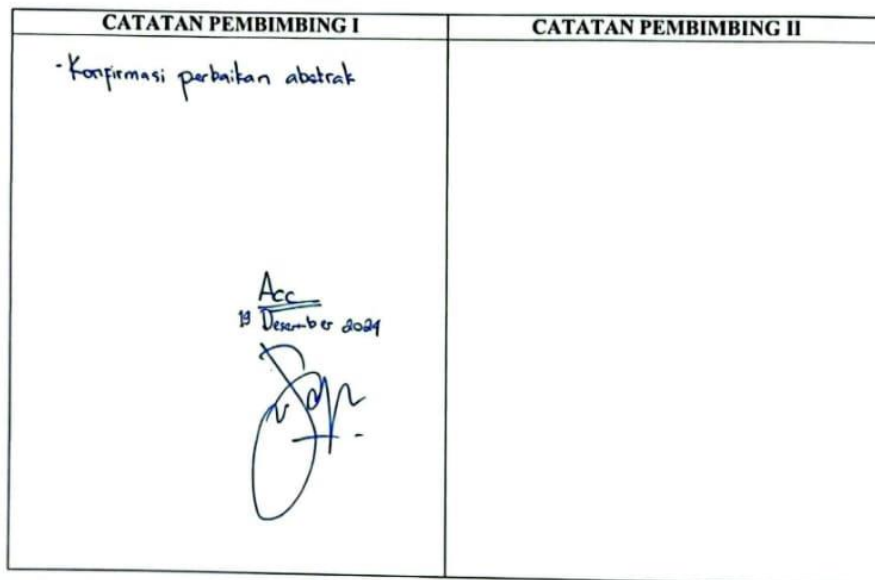 CATATAN PEMBIMBING I
CATATAN PEMBIMBING II
- Konfirmasi perbaikan abstrak
Acc
19 Desember 2024